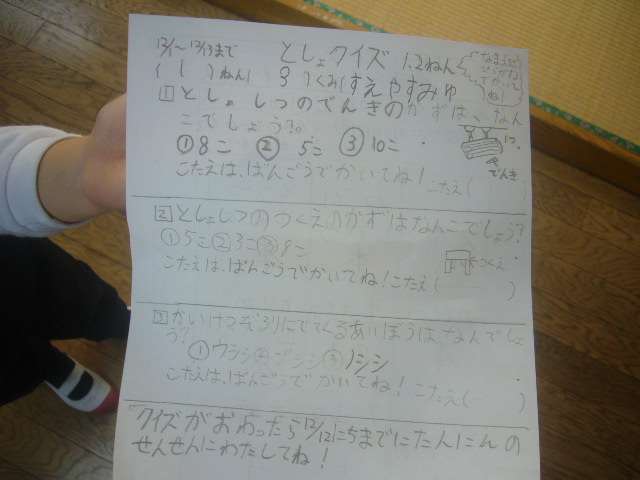 12/1～12/13まで
としょクイズ 1.2ねん
なまえは
かいてね!
( 1 )ねん( 3 )くみ( すえやすみゆ
1 としょしつのでんきのかずは、なん
こでしょう?
①8こ ② 5こ ③10こ
1つ
でんき
こたえは、ばんごうでかいてね!こたえ( )
2 としょしつのつくえのかずはなんこでしょう?
①5こ②3こ③9こ
つくえ
こたえは、ばんごうでかいてね!こたえ( )
3 かいけつぞろりにでてくるあいぼうはなんでしょ
う?
①ウシシ② シシ③ノシシ
こたえは、ばんごうでかいてね! こたえ( )
クイズがおわったら12/12にちまでにたんにんの
せんせんにわたしてね!